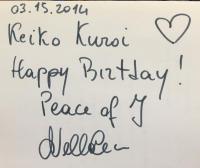 03.15.2014
Keiko Kuroi
Happy Birtday!
Peace of J